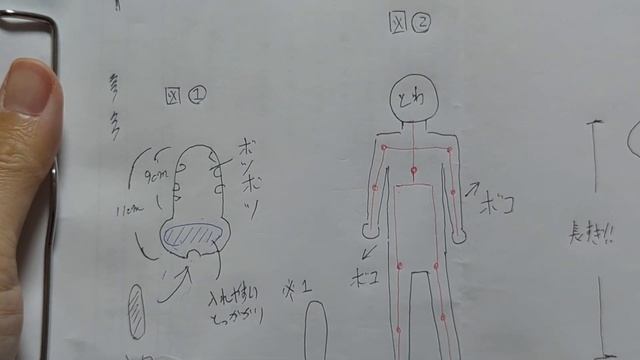 図 ②
図 ①
とわ
ボツボツ
9cm
11cm
ボコ
ボコ
長さ!!
入れやすい
とっかかり
※1